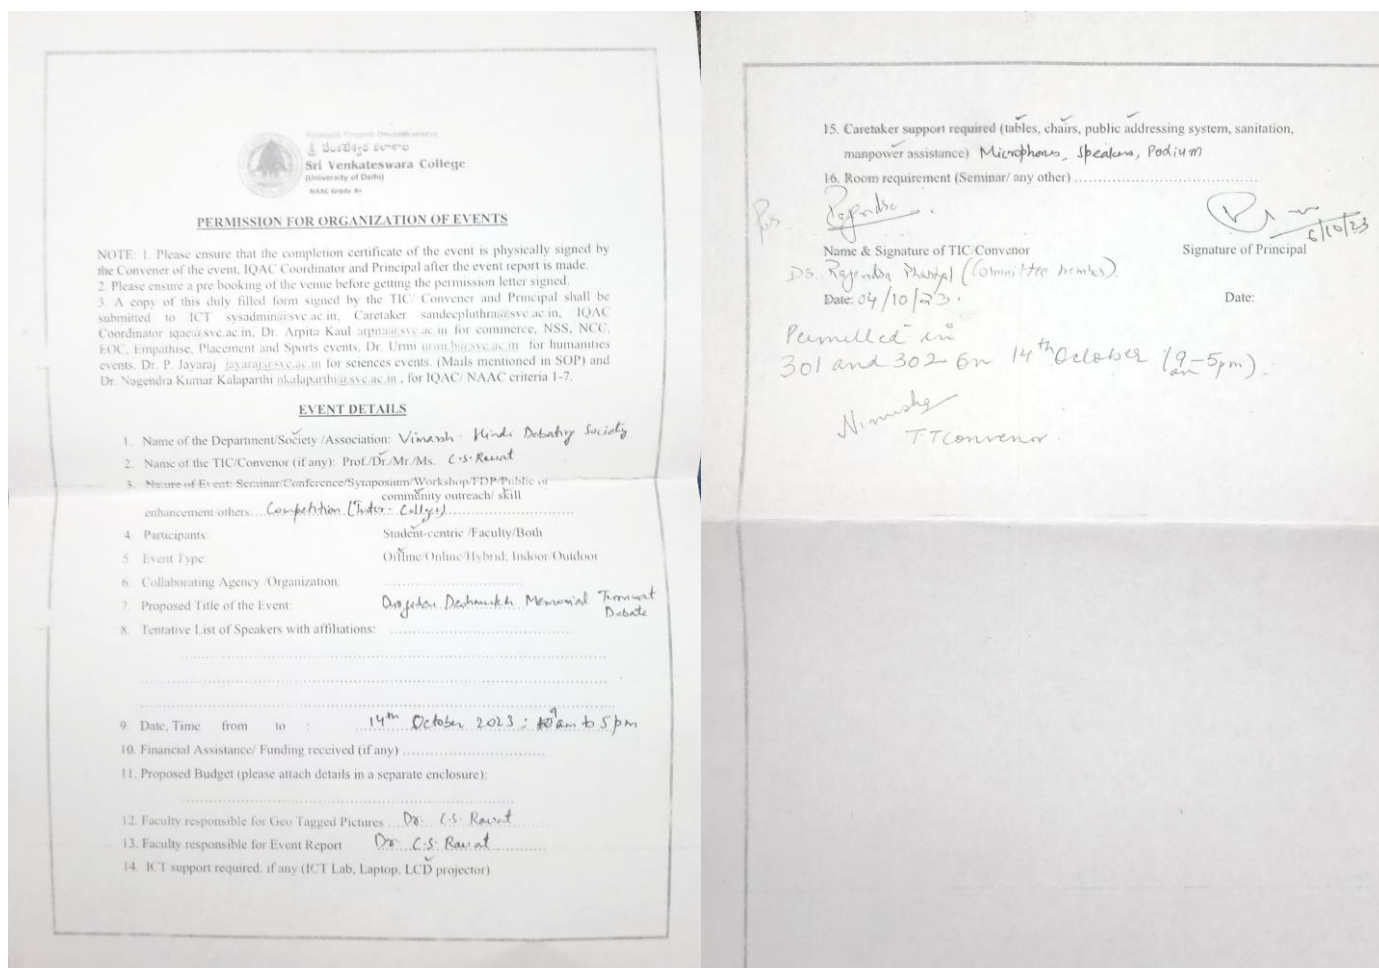 శ్రీ వేంకటేశ్వర కళాశాల
Sri Venkateswara College
(University of Delhi)
NAAC Grade A+
PERMISSION FOR ORGANIZATION OF EVENTS
NOTE: 1. Please ensure that the completion certificate of the event is physically signed by
the Convener of the event, IQAC Coordinator and Principal after the event report is made.
2. Please ensure a pre booking of the venue before getting the permission letter signed.
3. A copy of this duly filled form signed by the TIC/ Convener and Principal shall be
submitted to ICT sysadmin@svc.ac.in, Caretaker sandeepluthra@svc.ac.in, IQAC
Coordinator iqac@svc.ac.in, Dr. Arpita Kaul arpita@svc.ac.in for commerce, NSS, NCC,
EOC, Empathise, Placement and Sports events, Dr. Urmi urmi.b@svc.ac.in for humanities
events, Dr. P. Jayaraj jayaraj@svc.ac.in for sciences events. (Mails mentioned in SOP) and
Dr. Nagendra Kumar Kalaparthi nkalaparthi@svc.ac.in, for IQAC/ NAAC criteria 1-7.
EVENT DETAILS
1. Name of the Department/Society /Association: Vimarsh - Hindi Debating Society
2. Name of the TIC/Convenor (if any): Prof./Dr./Mr./Ms. C.S. Rawat
3. Nature of Event: Seminar/Conference/Symposium/Workshop/FDP/Public or
community outreach/ skill
enhancement/others... Competition (Inter-College)
4. Participants: Student-centric /Faculty/Both
5. Event Type: Offline/Online/Hybrid; Indoor/Outdoor
6. Collaborating Agency /Organization:
7. Proposed Title of the Event: Deshmukh Memorial
Debate
8. Tentative List of Speakers with affiliations:
9. Date, Time from to : 14th October 2023 : 9am to 5pm
10. Financial Assistance/ Funding received (if any)
11. Proposed Budget (please attach details in a separate enclosure):
12. Faculty responsible for Geo Tagged Pictures Dr. C.S. Rawat
13. Faculty responsible for Event Report Dr C.S. Rawat
14. ICT support required, if any (ICT Lab, Laptop, LCD projector)
15. Caretaker support required (tables, chairs, public addressing system, sanitation,
manpower assistance) Microphones, Speakers, Podium
16. Room requirement (Seminar/ any other)
Rajendra
6/10/23
Name & Signature of TIC/Convenor Signature of Principal
Dr. Rajendra (Committee member).
Date: 04/10/23. Date:
Permitted in
301 and 302 on 14th October (9am-5pm).
TT Convenor